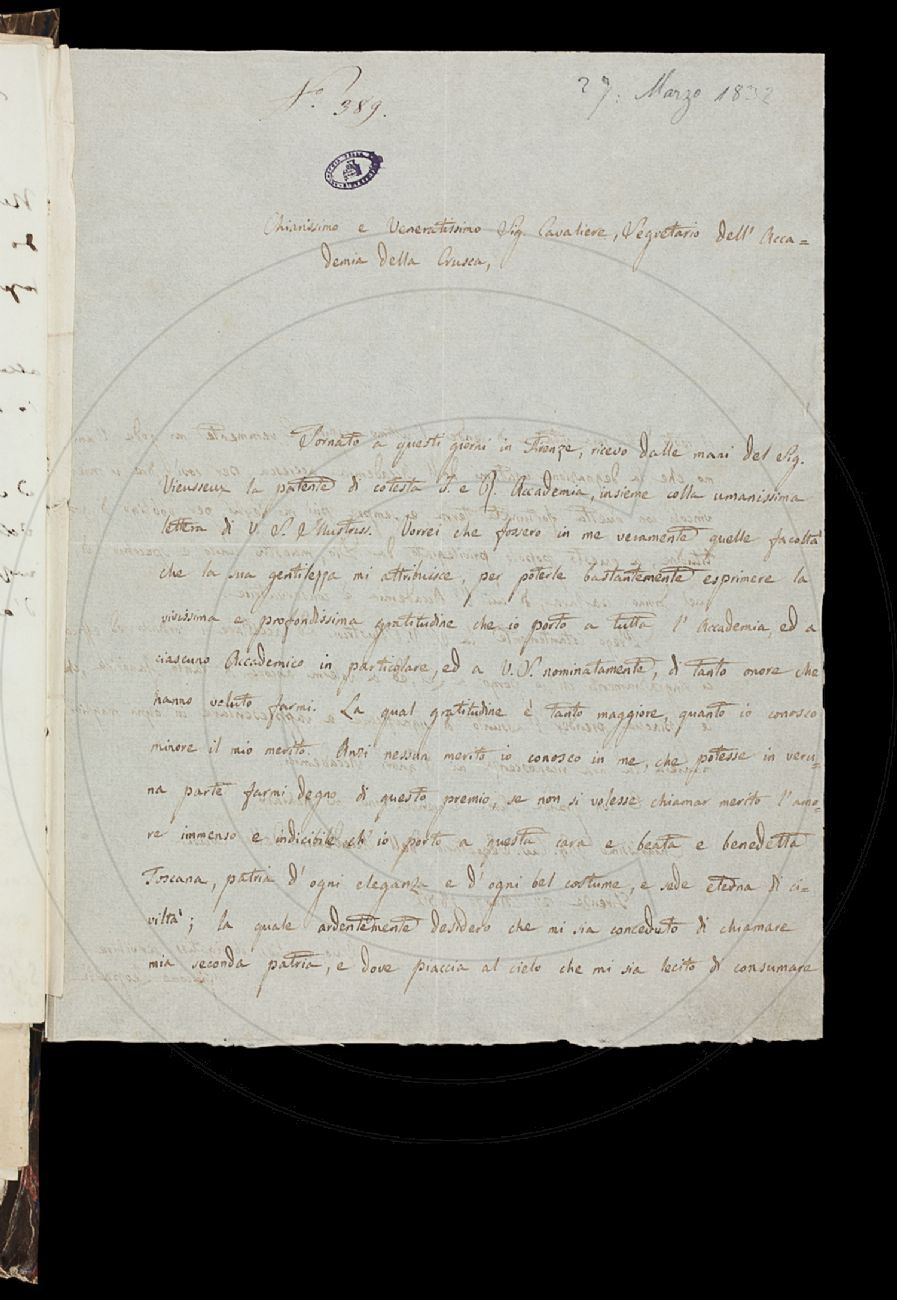 N.º 389.
27: Marzo 1832
Chiarissimo e Veneratissimo Sig. Cavaliere, Segretario dell' Acca=
demia della Crusca,
Tornato a questi giorni in Firenze, ricevo dalle mani del Sig.
Vieusseux la patente di cotesta I. e R. Accademia, insieme colla umanissima
lettera di V. S. Illustriss. Vorrei che fossero in me veramente quelle facoltà
che la sua gentilezza mi attribuisce, per poterle bastantemente esprimere la
vivissima e profondissima gratitudine che io porto a tutta l' Accademia, ed a
ciascuno Accademico in particolare, ed a V. S. nominatamente, di tanto onore che
hanno voluto farmi. La qual gratitudine è tanto maggiore, quanto io conosco
minore il mio merito. Anzi nessun merito io conosco in me, che potesse in veru=
na parte farmi degno di questo premio, se non si volesse chiamar merito l' amo=
re immenso e indicibile ch' io porto a questa cara e beata e benedetta
Toscana, patria d' ogni eleganza e d' ogni bel costume, e sede eterna di ci=
viltà; la quale ardentemente desidero che mi sia conceduto di chiamare
mia seconda patria, e dove piaccia al cielo che mi sia lecito di consumare